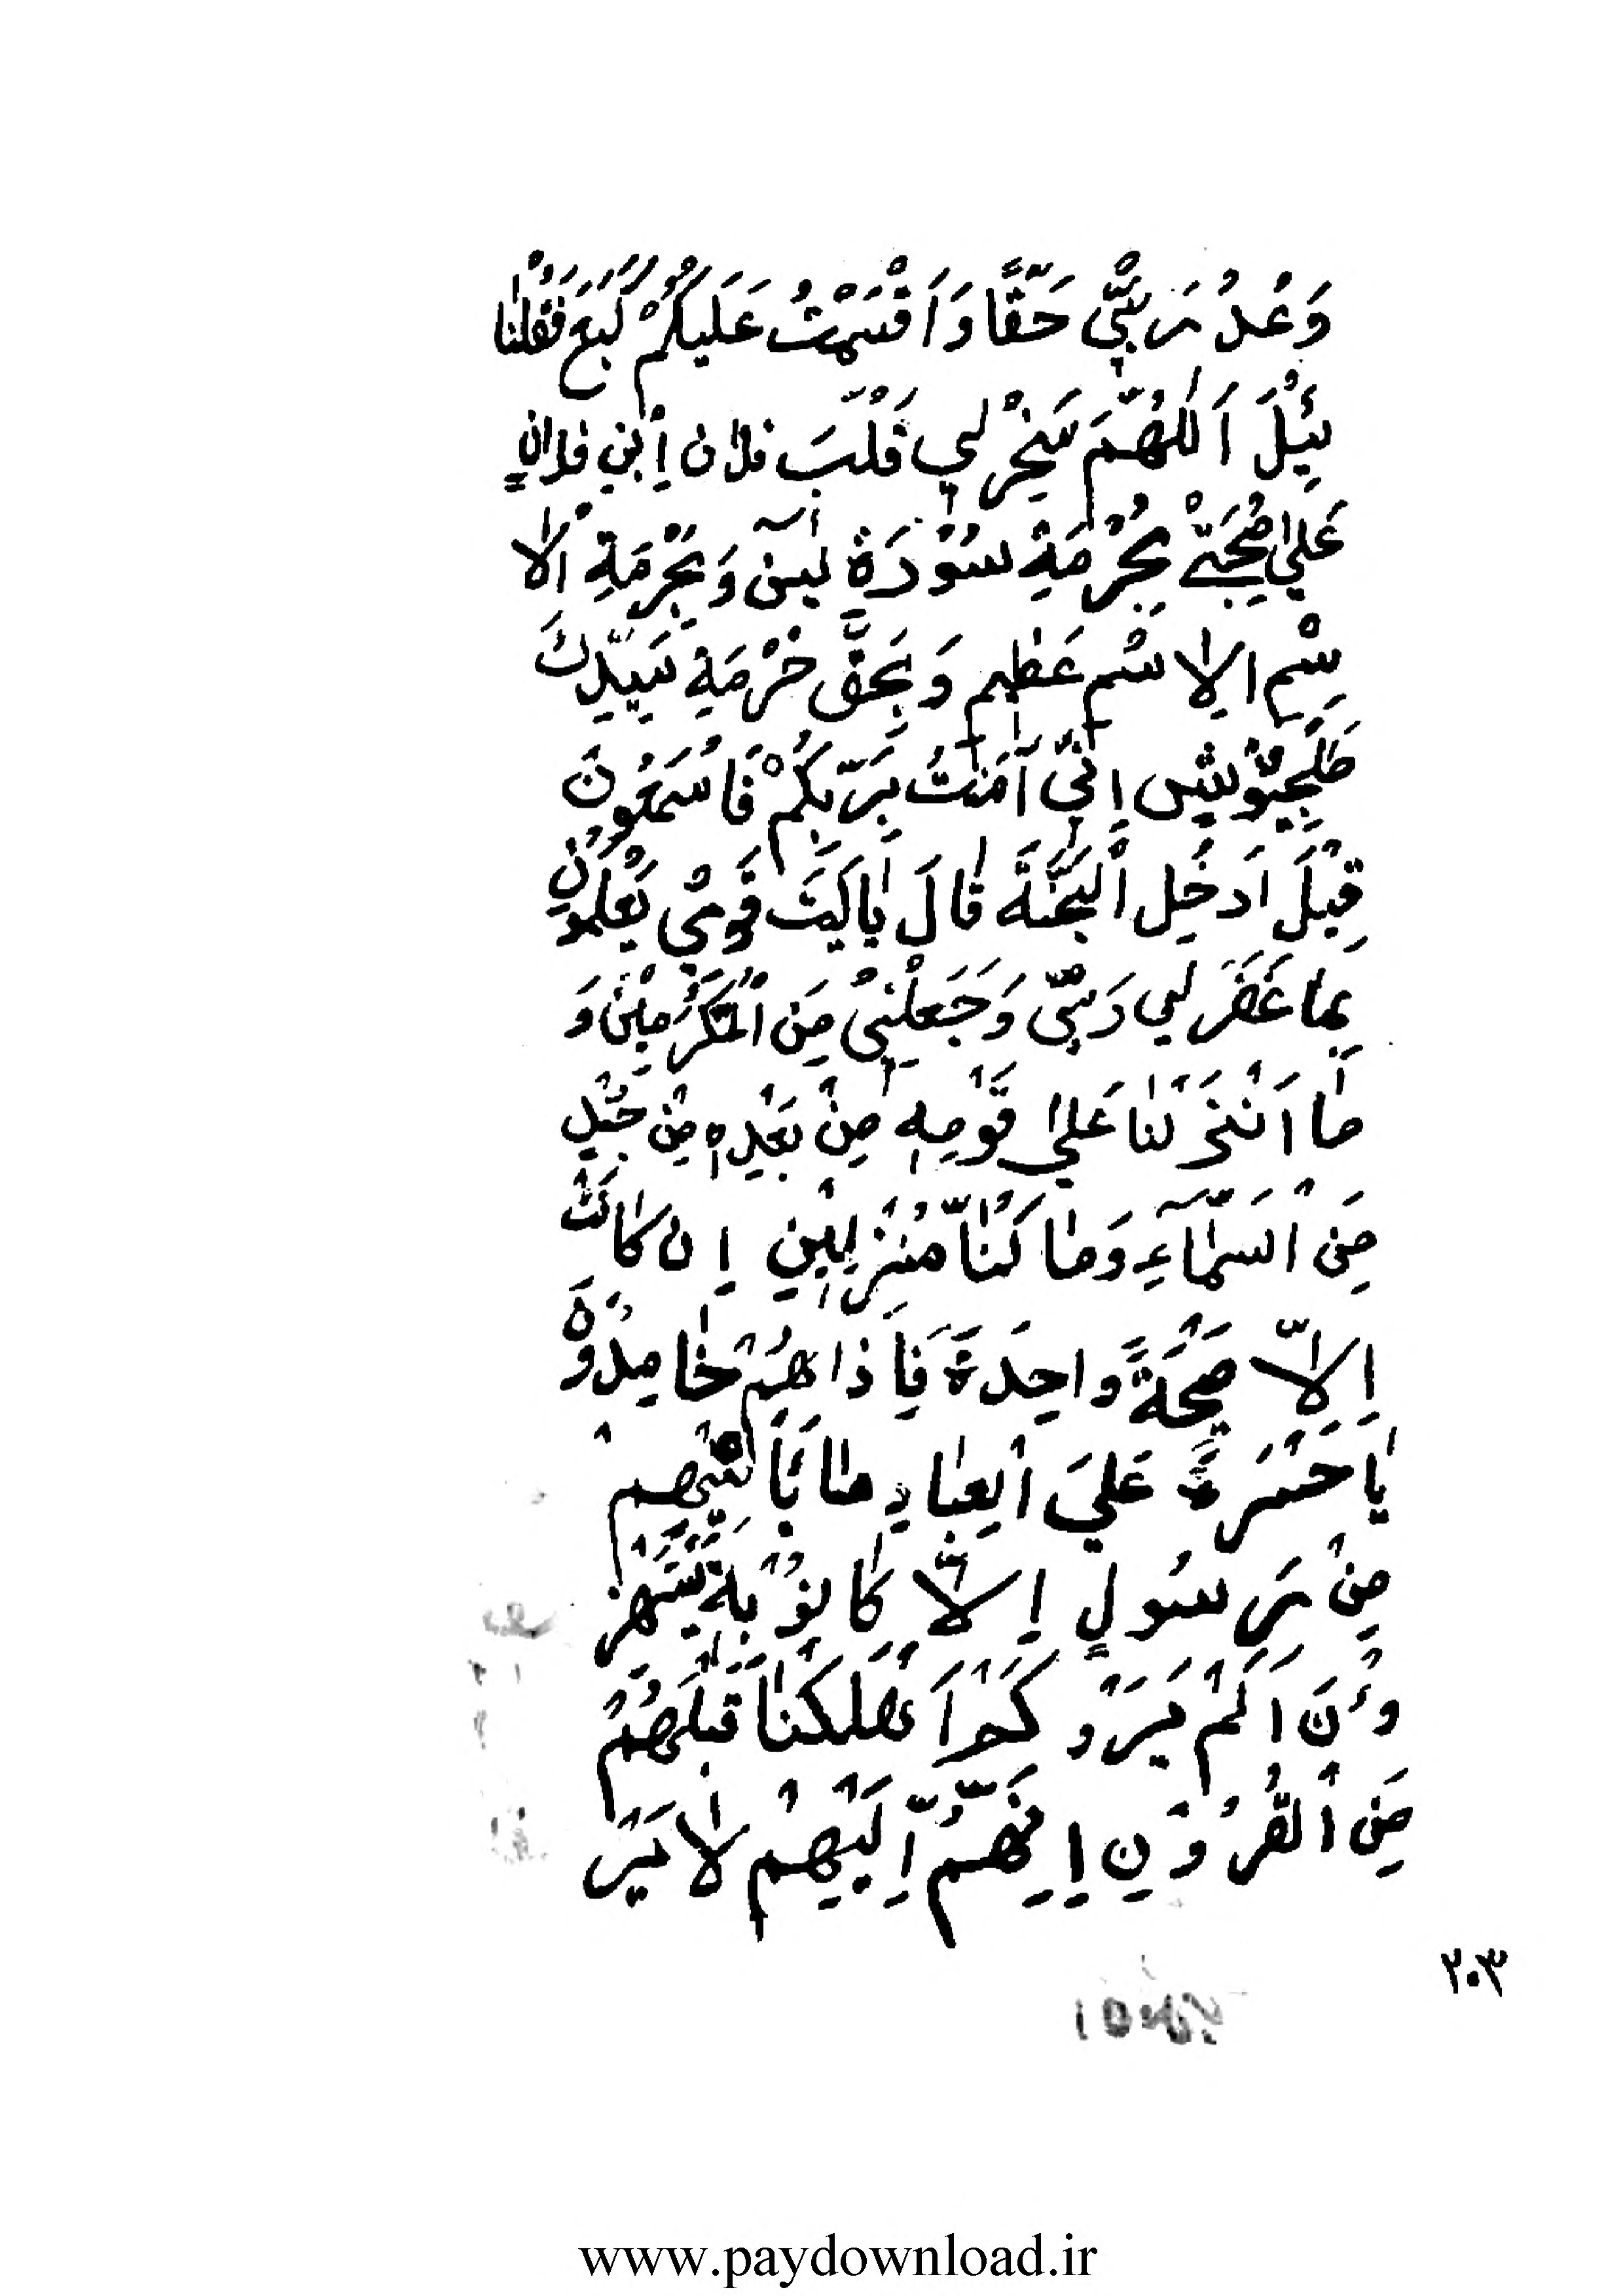 وَعْدُ رَبّيْ حَقّاً وَ اَقْسَمْتُ عَلَيكُمْ
ئيْلَ اَللّهُمَّ سَخِرْ لي قَلْبَ فلان اِبْنِ فلانٍ
عَليٰ مُحَبَّتْ بِحُرْمَةِ سُوْرَةِ يٰسۤ وَ بِحُرْمَةِ الْاِ
سْمِ الاِسْمِ عَظيم وَ بِحَقِّ حُرْمَةِ
اِنّيْ آمَنْتُ بِرَبِّكُمْ فَاسْمَعُونَ
قِيْلَ ادَخُلِ الْجَنَّةَ قٰالَ يٰالَيَتَ قَوميْ يَعْلَموُنِ
بِمٰا غَفَرَ لي رَبّيْ وَ جَعَلَنِيْ مِنَ الْمُكَرَّمِيْنَ وَ
مٰا اَنْزَلْنٰا عَليٰ قَوْمِهِ مِنْ بَعْدِهِ مِنْ جُنْدٍ
مِنَ السَّمٰآءِ وَ مٰا كُنّٰا مُنْزِلِيْنَ اِن كٰانَتْ
اِلّاٰ صَيْحَةً واحِدَةً فَاِذا هُمْ خٰامِدوُنَ
يٰا حَسْرَةً عَليَ الْعِبٰادِ مٰا يَأتيْهِمْ
مِنْ رَسُولٍ اِلّاٰ كٰانوُ بِهِ يَسْتَهْزِ
وُنَ اَلَمْ يَرَوْ كَمْ اَهْلَكْنٰا قَبْلَهُمْ
مِنَ الْقُرُوْنِ اِنَّهُمْ اِلَيْهِمْ لاٰ يَرْ
٢٠٣
www.paydownload.ir